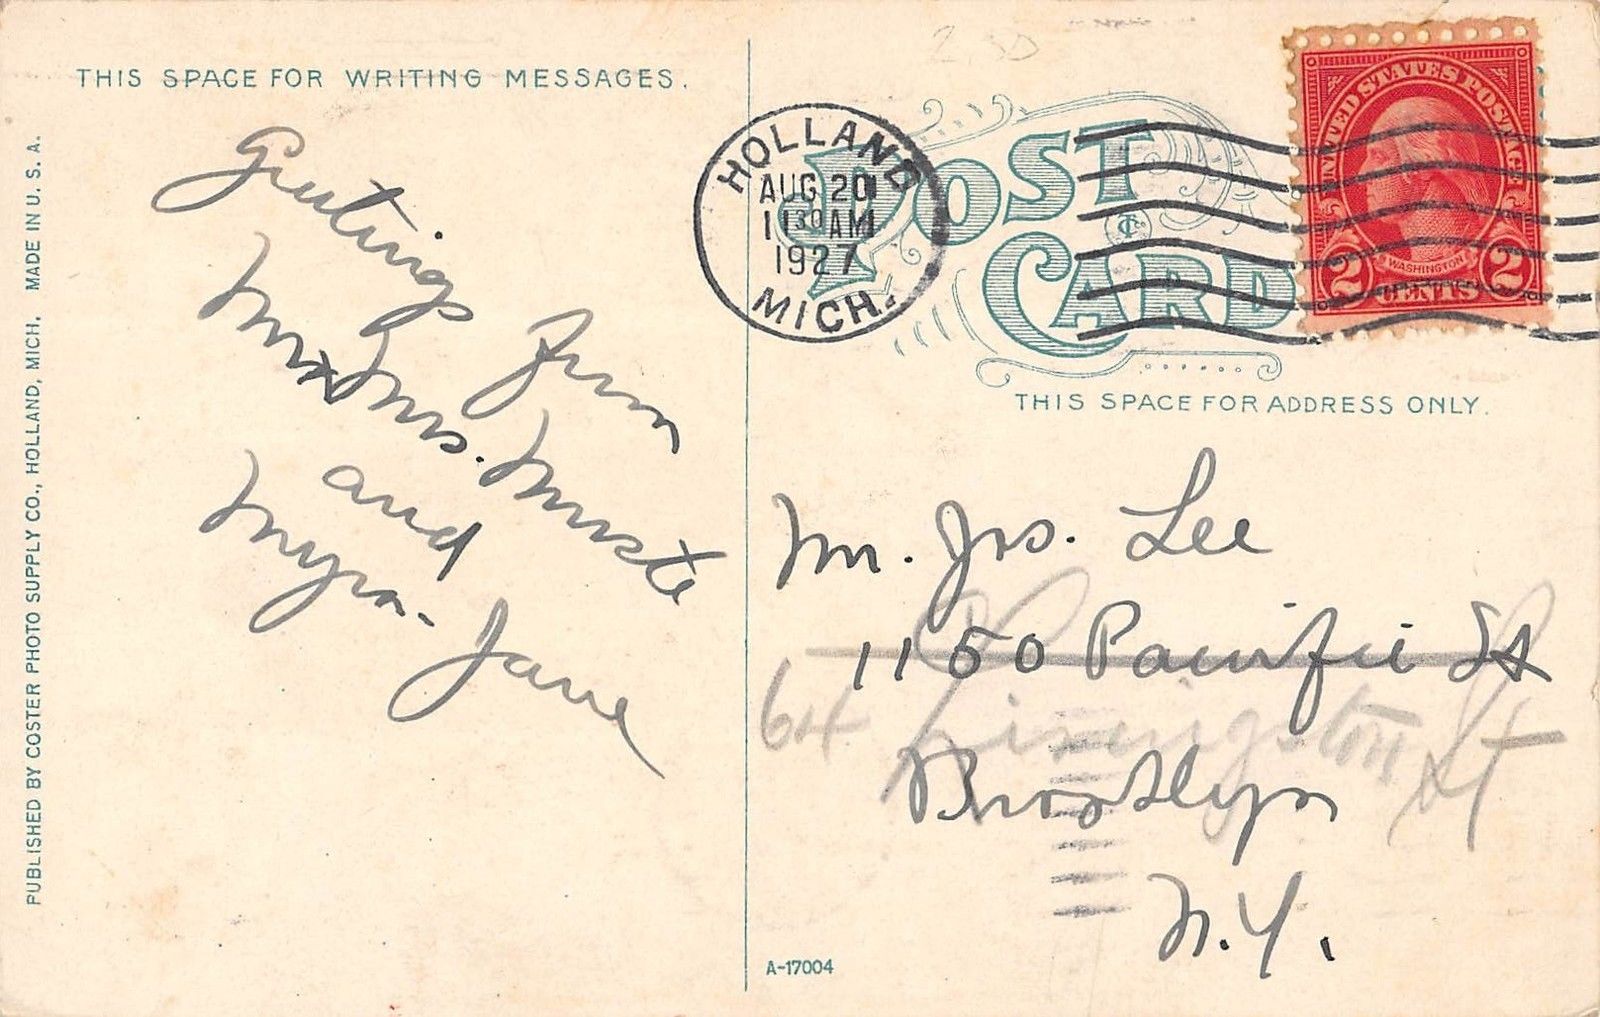 THIS SPACE FOR WRITING MESSAGES.
PUBLISHED BY COSTER PHOTO SUPPLY CO., HOLLAND, MICH. MADE IN U. S. A.
Greetings from
Mr & Mrs. Muste
and
Myra-Jane
2.50
HOLLAND
AUG 20
11 30 AM
1927
MICH.
POST
CARD
UNITED STATES POSTAGE
WASHINGTON
2 CENTS 2
THIS SPACE FOR ADDRESS ONLY.
Mr. Jos. Lee
1150 Pacific St
64 Livingston St
Brooklyn
N.Y.
A-17004